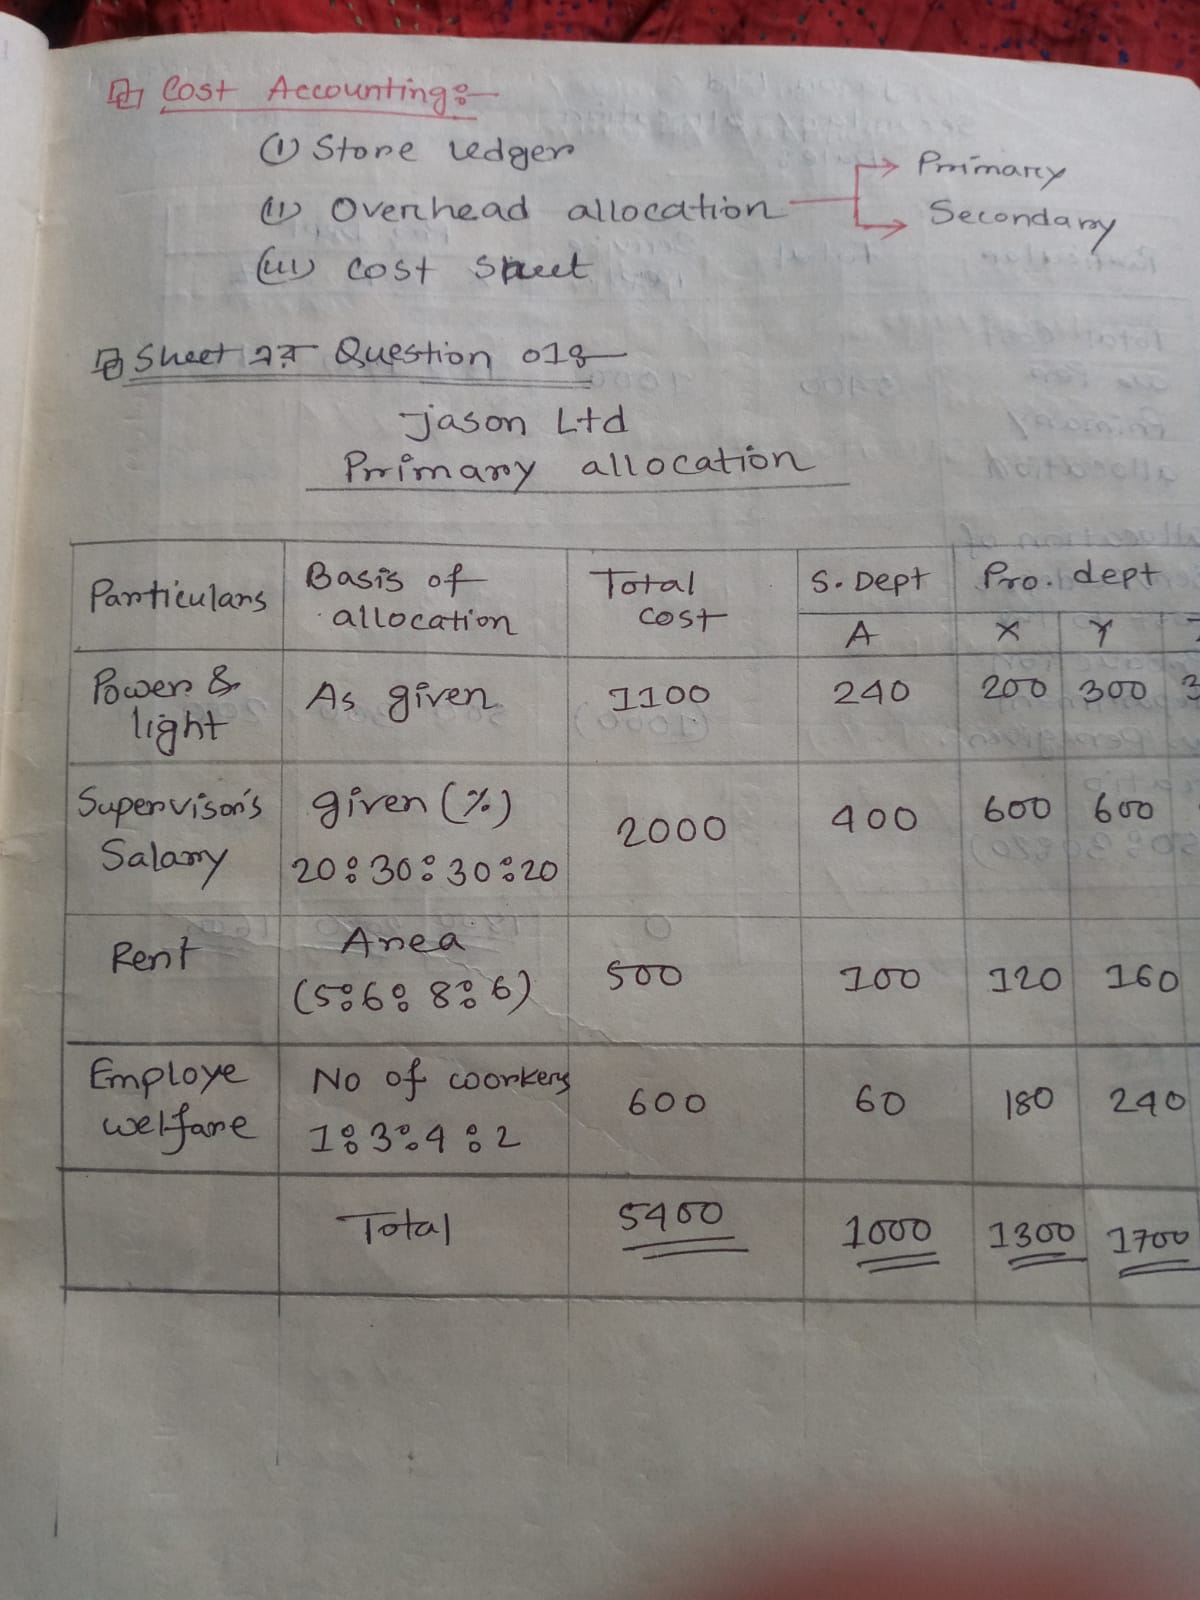 Cost Accounting:-
(i) Store Ledger
(ii) Overhead allocation → Primary
→ Secondary
(iii) Cost Sheet
Sheet এর Question 01:-
Jason Ltd
Primary allocation
Particulars | Basis of allocation | Total cost | S. Dept | Pro. dept
A | X | Y
Power & light | As given | 1100 | 240 | 200 | 300 | 3
Supervisor's Salary | given (%) 20:30:30:20 | 2000 | 400 | 600 | 600
Rent | Area (5:6:8:6) | 500 | 100 | 120 | 160
Employe welfare | No of workers 1:3:4:2 | 600 | 60 | 180 | 240
Total | 5400 | 1000 | 1300 | 1700